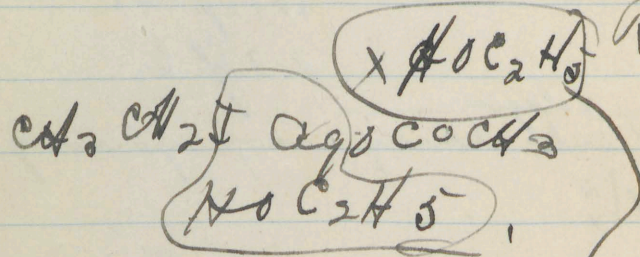 x HOC2H5
CH3 CH2I AgO COCH3
HO C2H5